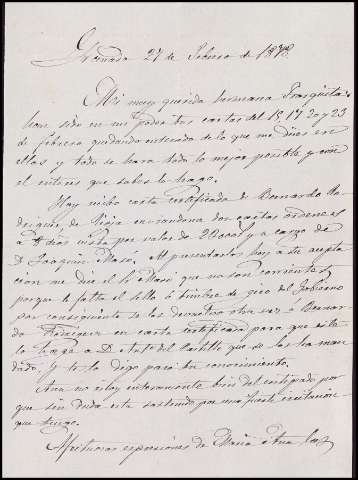 Granada 27 de Febrero de 1878.
Mi muy querida hermana Frasquita:
han sido en mi poder tus cartas del 15, 17 20 y 23
de febrero quedando enterado de lo que me dices en
ellas y todo se hara todo lo mejor posible y con
el interes que sabes lo hago.
Hoy recibo carta certificada de Bernardo Ro
driguez de Rioja dos cartas ordenes
a 8 dias vista por valor de y a cargo de
D. Joaquin Masó. Al presentarlas hoy a su acepta
cion me dice el Sr Masó que no son corrientes
porque le falta el sello ó timbre de giro del Gobierno
por consiguiente se las devuelvo otra vez á Bernar
do Rodriguez en carta certificada para que este
lo haga a D. Anto del Castillo que se las ha man
dado, y te lo digo para tu conocimiento.
Aun no estoy enteramente bien del por
que sin duda esta sostenido por una fuerte irritacion
que tengo.
Afectuosas espresiones de Maria Ana